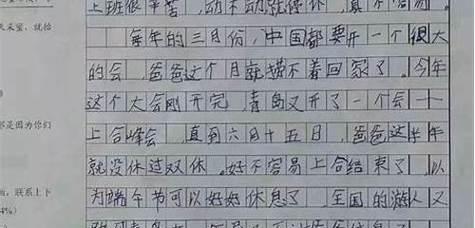 上班很辛苦,动不动就停休,真不容易。
每年的三月份,中国都要开一个很大
的会,爸爸这个月就捞不着回家了。今年
这个大会刚开完,青岛又开了一个会——
上合峰会,直到六月十五日,爸爸这半年
就没休过双休。好不容易上合结束了,以
为端午节可以好好休息了,全国的游人又
天采蜜,就恰
那是因为你们
,联系上下
4%)